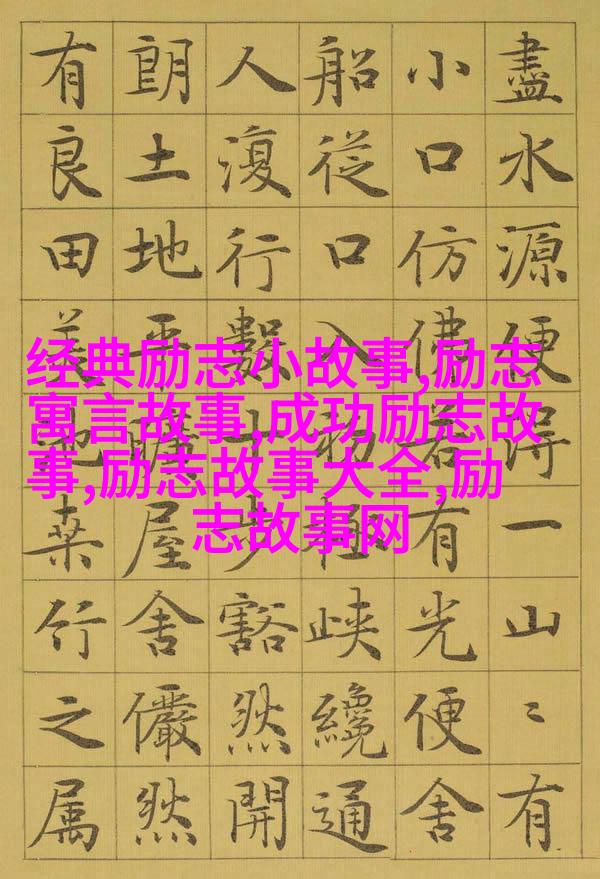 盡水源便得一山〻有
小口仿佛若有光便舍
船從口入初極峽纔通
人復行數十步豁然開
朗土地平曠屋舍儼然
有良田美池桑竹之属
经典励志小故事,励志
寓言故事,成功励志故
事,励志故事大全,励
志故事网